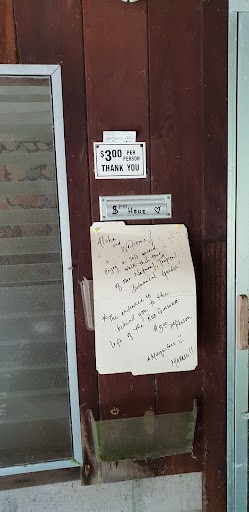 $3.00 PER
PERSON
THANK YOU
$ HERE ♡
Aloha
and Welcome!
Enjoy a self guided
walk thru tour
of our Natural Tropical
Botanical Garden
*The entrance is
behind you to the
left of the Bee
$3.00 person
Mahalo!!